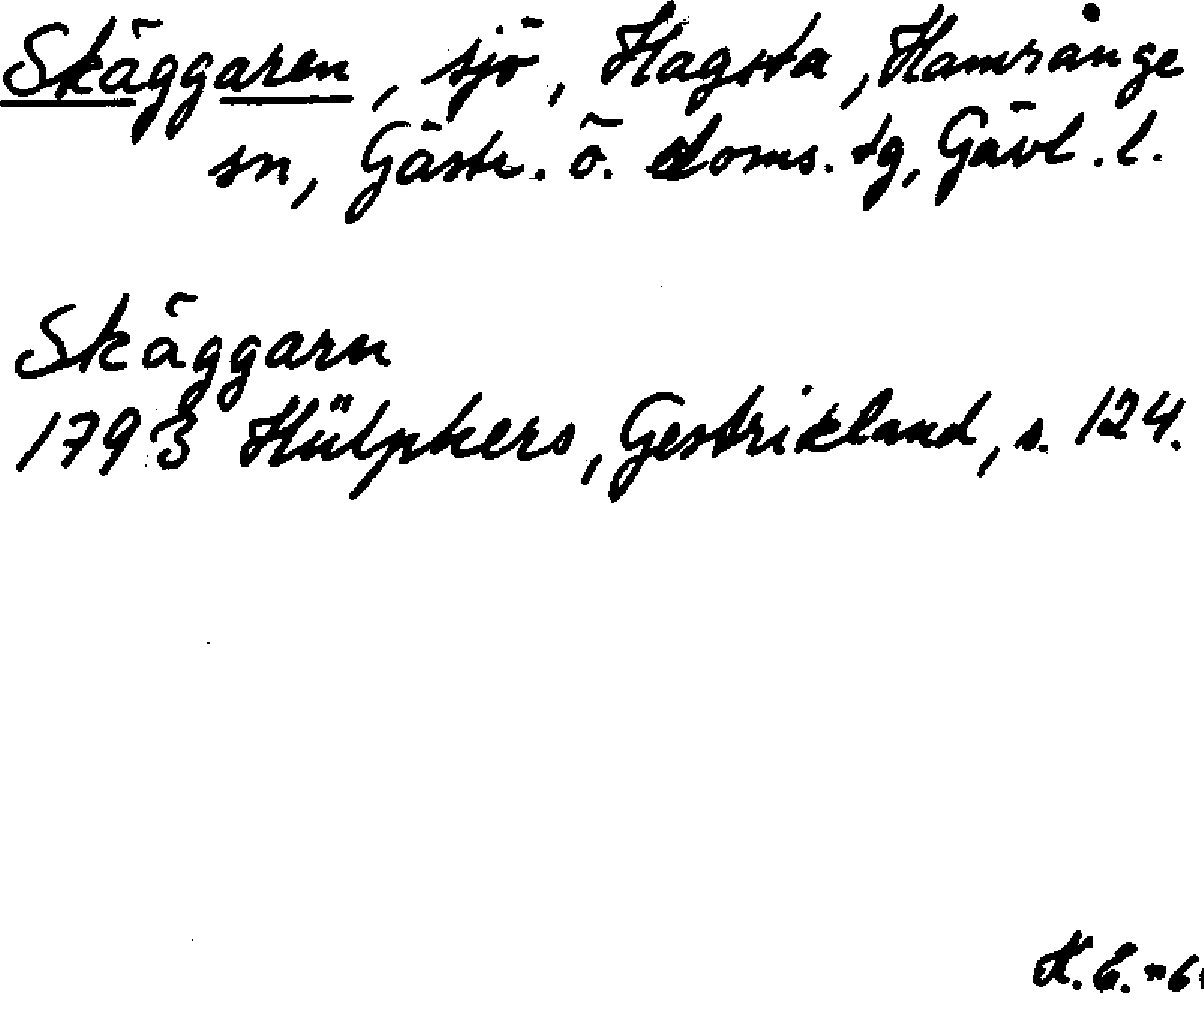 Skäggaren, sjö, Hagsta, Hamrånge
sn, Gästr. ö. doms. tg, Gävl. l.
Skäggarn
1793 Hülphers, Gestrikland, s. 124.